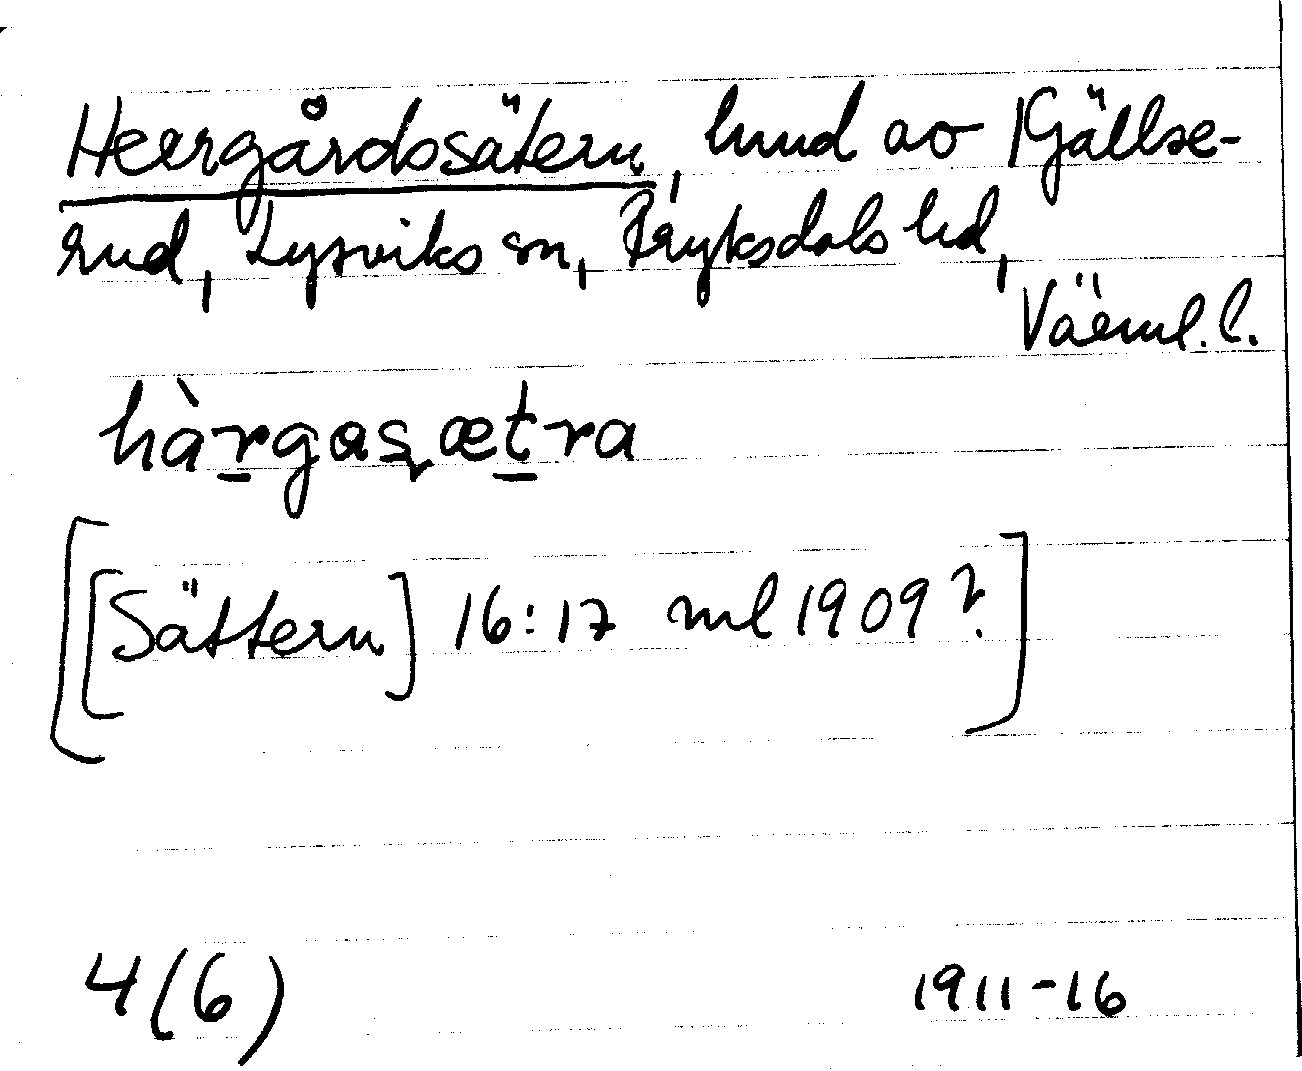 Herrgårdssätern, hmd av Gällse-
rud, Lysviks sn, Fryksdals hd,
Värml. l.
hàrgasætra
[[Sättern] 16:17 ml 1909?]
4(6)
1911-16